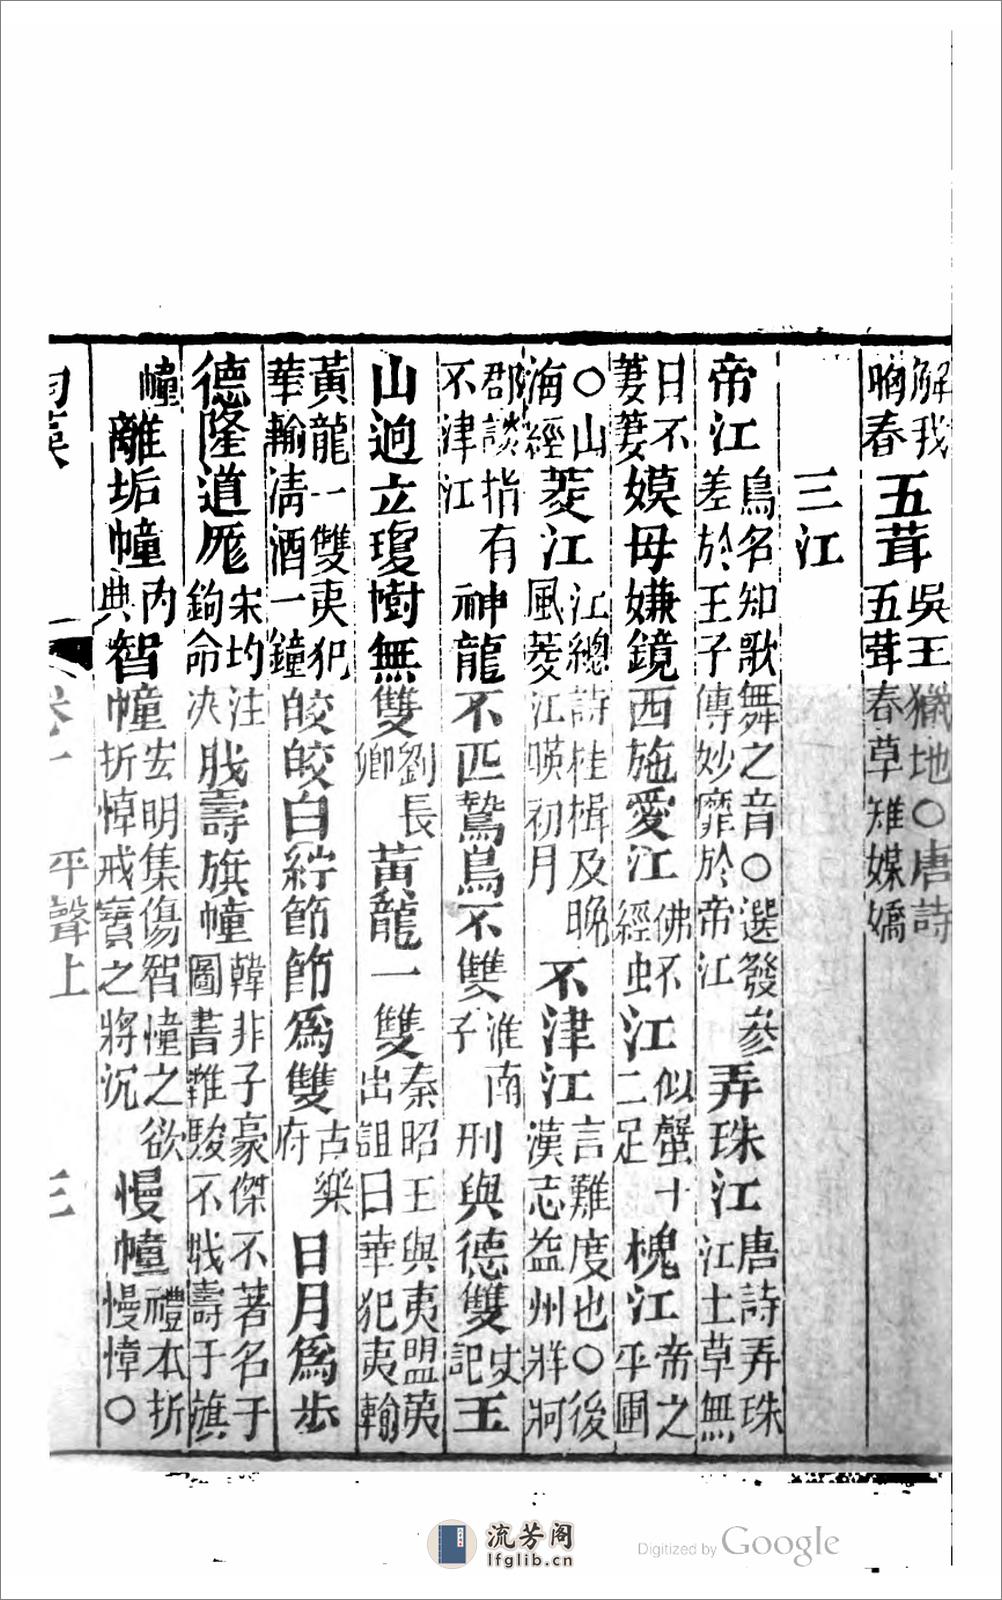 解我
晌春五茸吳王獵地○唐詩
五茸春草雉媒嬌
三江
帝江鳥名知歌舞之音○選發
差於王子傳妙靡於帝江弄珠江唐詩弄珠
江土草無
日不
萋萋嫫母嫌鏡西施愛江佛不
經虫江似蟹十
二足槐江帝之
平圃
○山
海經菱江江總詩桂楫及晚
風菱江暎初月不津江言難度也○後
漢志益州牂牁
郡談指有
不津江神龍不匹鷙鳥不雙淮南
子刑與德雙史
記王
山逈立瓊樹無雙劉長
卿黃龍一雙秦昭王與夷盟
出詛曰華犯夷輸
黃龍一雙夷犯
華輸清酒一鐘皎皎白紵節節爲雙古樂
府日月爲步
德隆道厖宋均注
鉤命決戕壽旗幢韓非子豪傑不著名于
圖書雜駿不戕壽于旗
幢離垢幢內
典智幢安明集傷智幢之欲
折悼戒寶之將沉慢幢禮本折
慢幢○
卷一 平聲上 三
流芳阁
lfglib.cn
Digitized by Google